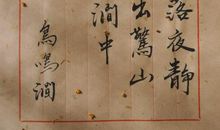 落夜靜
出驚山
澗中
鳥鳴澗